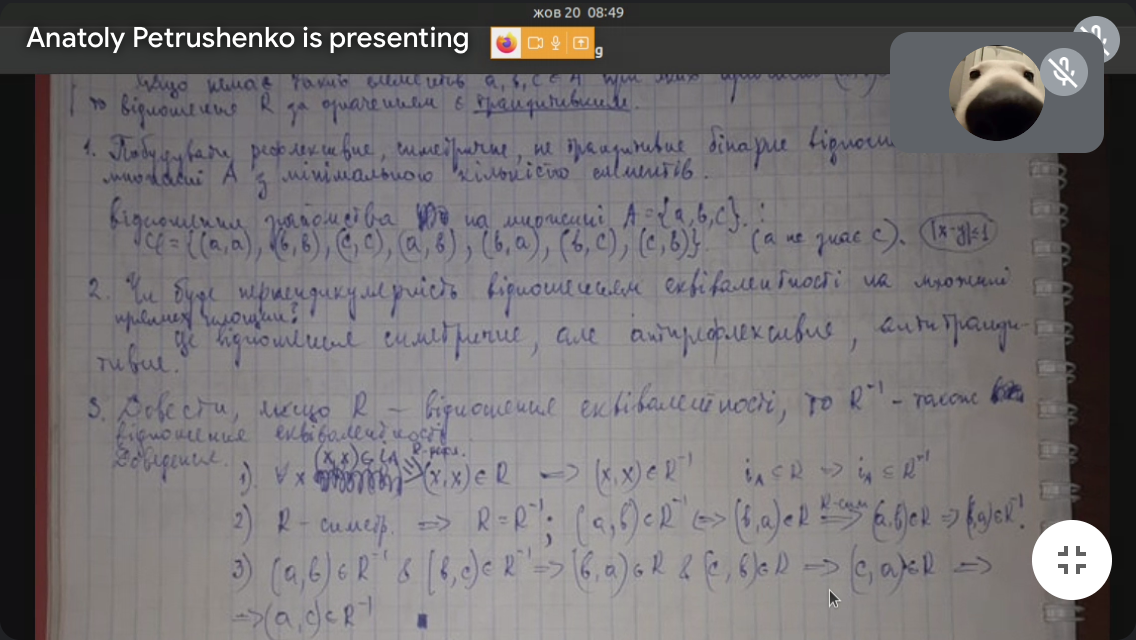 жов 20 08:49
Anatoly Petrushenko is presenting
g
Якщо немає таких елементів a, b, c ∈ A при яких
то відношення R за означенням є транзитивним.
1. Побудувати рефлексивне, симетричне, не транзитивне бінарне
множині A з мінімальною кількістю елементів.
відношення знайомства на множині A = {a, b, c}. :
= {(a,a), (b,b), (c,c), (a,b), (b,a), (b,c), (c,b)}. (a не знає c). |x-y|≤1
2. Чи буде перпендикулярність відношенням еквівалентності на множині
прямих площини?
Це відношення симетричне, але антирефлексивне, антитранзи-
тивне.
3. Довести, якщо R – відношення еквівалентності, то R⁻¹ – також
відношення еквівалентності
Доведення.
(x,x)∈iA R-рефл.
1). ∀x => (x,x)∈R => (x,x)∈R⁻¹ iA ⊆ R => iA ⊆ R⁻¹
2) R – симетр. => R = R⁻¹; (a,b)∈R⁻¹ <=> (b,a)∈R R-сим => (a,b)∈R => (b,a)∈R⁻¹.
3) (a,b)∈R⁻¹ & (b,c)∈R⁻¹ => (b,a)∈R & (c,b)∈R => (c,a)∈R =>
=> (a,c)∈R⁻¹